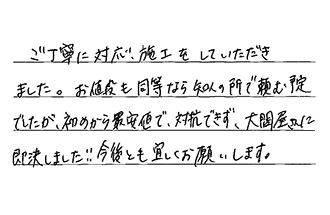 ご丁寧に対応、施工をしていただき
ました。お値段も同等なら知人の所で頼む予定
でしたが、初めから最安値で、対抗できず、大関屋さんに
即決しました!!今後とも宜しくお願いします。